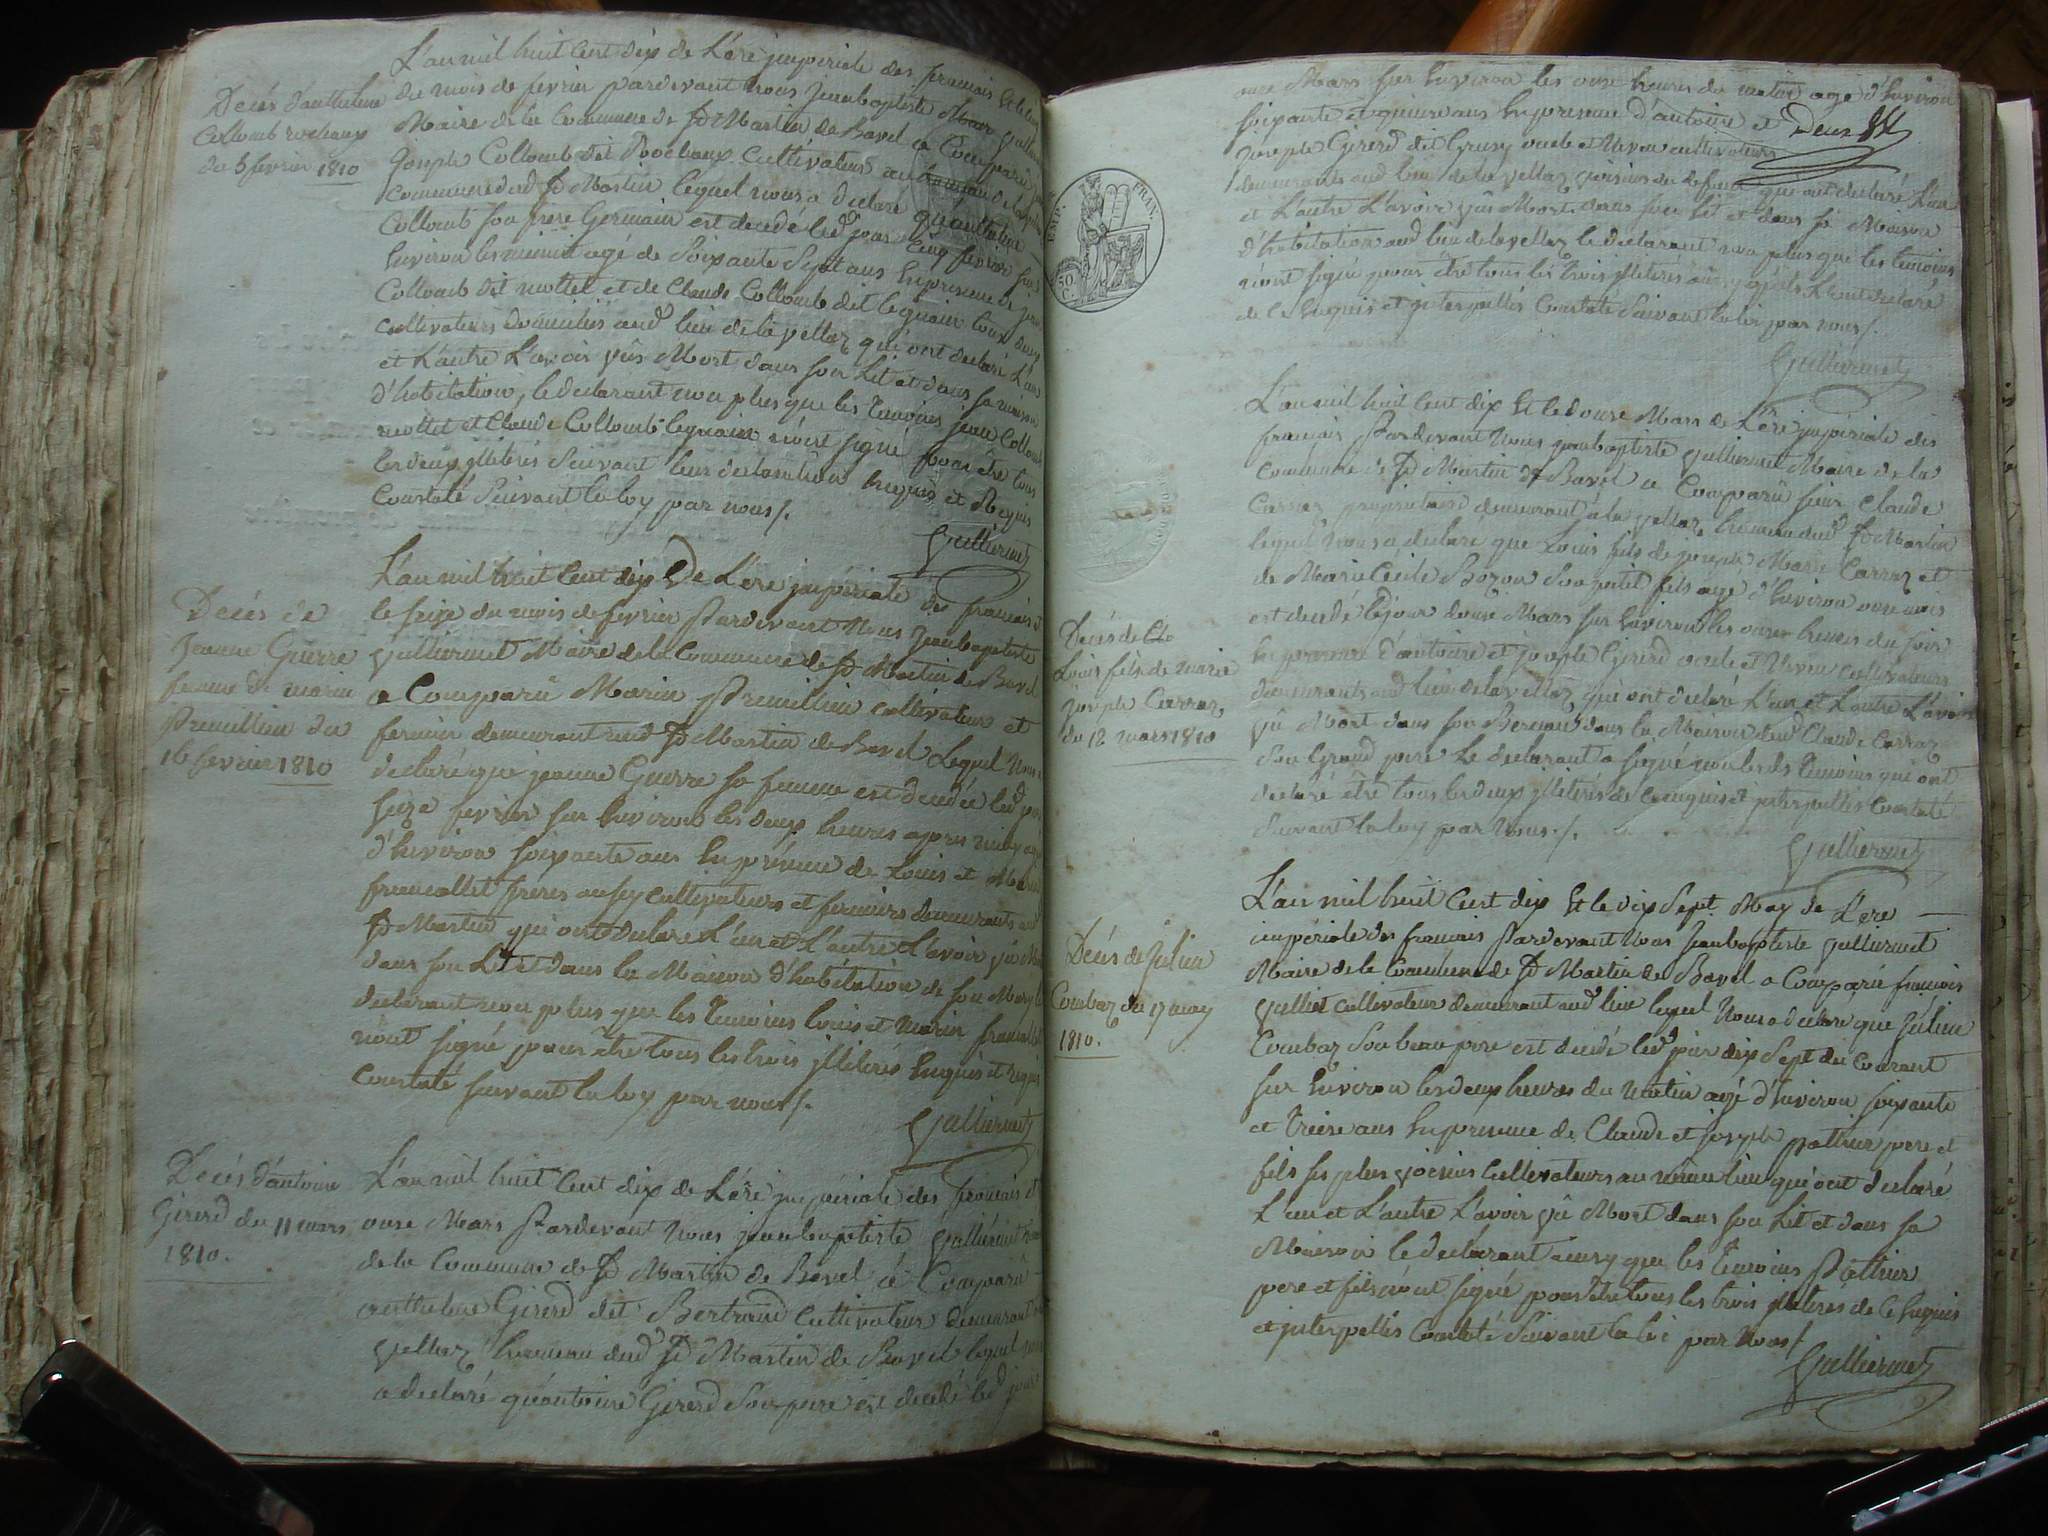 Décés d'anthelme
Collomb rochaux
du 5 fevrier 1810
L'an mil huit Cent dix de L'ére jmpériale des francais Et le cinq
du mois de fevrier pardevant nous Jeanbaptiste
Maire de la Commune de St Martin de Bavel a Comparû
Joseph Collomb dit Rochaux Cultivateur au hameau de la
Commune dud St Martin lequel nous a declaré qu'anthelme
Collomb son frere Germain est decedé led jour cinq fevrier sur
Environ les minuit agé de Soixante Sept ans En presence de jean
Collomb dit mottet et de Claude Collomb dit lequain tous deux
cultivateurs domiciliés aud lieu de la vellaz qui ont declaré L'un
et L'autre L'avoir vûs Mort dans son Lit et dans sa maison
d'habitation, le declarant non plus que les temoins jean Collomb
mottet et Claude Collomb lequain n'ont signé pour être tous
les deux jlleterés Suivant leur declaration Enquis et Requis
Constaté Suivant la loy par nous /.
Gullierme
Decés de
Jeanne Guerre
femme de marin
Premillieu du
16 fevrier 1810
L'an mil huit Cent dix De L'ere jmpériale des francais et
le seize du mois de fevrier Pardevant Nous Jeanbaptiste
Gulliermet Maire de la Commune de St Martin de Bavel
a Comparû Marin Premillieu cultivateur et
fermier demeurant aud St Martin de Bavel Lequel Nous a
declaré que jeanne Guerre sa femme est decedée led jour
seize fevrier sur Environ les deux heures apres midy agée
d'Environ soixante ans En présence de Louis et Marin
francallet freres aussy cultivateurs et fermiers demeurants aud
St Martin qui ont declaré L'un et L'autre L'avoir vû Morte
dans son Lit et dans la Maison d'habitation de son Mary le
declarant non plus que les temoins louis et Marin francallet
n'ont signé pour être tous les trois jlleterés Enquis et requis
Constaté suivant la loy par nous /.
Gulliermet
Decés d'antoine
Girerd du 11 mars
1810.
L'an mil huit Cent dix de L'ére jmpériale des francais et
onze Mars Pardevant Nous jeanbaptiste Gulliermet
de la Commune de St Martin de Bavel a Comparû
anthelme Girerd dit Bertrand Cultivateur demeurant
vellaz hameau dud St Martin de Bavel lequel nous
a declaré qu'antoine Girerd Son pere est decedé led jour
onze Mars sur Environ les onze heures du matin age d'Environ
soixante et quinze ans En presence d'antoine et Deux
joseph Girerd dit Grusy oncle et Neveu cultivateurs
demeurants aud lieu de la vellaz voisins du defunt qui ont declaré L'un
et L'autre L'avoir vûs Mort dans son Lit et dans sa Maison
d'habitation aud lieu de la vellaz le declarant non plus que les temoins
n'ont signé pour être tous les trois jlleterés ainsy qu'ils L'ont declaré
de Ce Enquis et jnterpellés Constaté Suivant la loy par nous /.
Gulliermet
EMP. FRAN.
50 C.
Decés de
Louis fils de marie
joseph Carraz
du 12 mars 1810
L'an mil huit Cent dix Et le douze Mars de L'ére jmpériale des
francais Pardevant Nous jeanbaptiste Gulliermet Maire de la
Commune de St Martin de Bavel a Comparû sieur Claude
Carraz proprietaire demeurant à la vellaz hameau dud St Martin
lequel Nous a declaré que Louis fils de joseph Marie Carraz et
de Marie Cécile Bozon Son petit fils agé d'Environ onze mois
est decedé led jour douze Mars sur Environ les onze heures du soir
En presence d'antoine et joseph Girerd oncle et Neveu cultivateurs
demeurants aud lieu de la vellaz qui ont declaré L'un et L'autre L'avoir
vû Mort dans son Berceau dans la Maison dud Claude Carraz
Son Grand pere Le declarant a signé non les ds temoins qui ont
declaré être tous les deux jlleterés de Ce enquis et jnterpellés Constaté
Suivant la loy par Nous /.
Gulliermet
Decés de Julien
Combaz du 17 may
1810.
L'an mil huit Cent dix Et le dix Sept May de L'ere
impériale des francais Pardevant Nous Jeanbaptiste Gulliermet
Maire de la Commune de St Martin de Bavel a Comparû françois
Gulliet cultivateur demeurant aud lieu lequel Nous a declaré que Julien
Combaz Son beau pere est decedé led jour dix Sept du Courant
sur Environ les deux heures du Matin agé d'Environ soixante
et treize ans En presence de Claude et joseph pere et
fils ses plus voisins Cultivateurs au même lieu qui ont declaré
L'un et L'autre L'avoir vû Mort dans son Lit et dans sa
Maison le declarant ainsy que les temoins
pere et fils n'ont signé pour être tous les trois jlleterés de Ce Enquis
et jnterpellés Constaté Suivant la loi par Nous /
Gulliermet